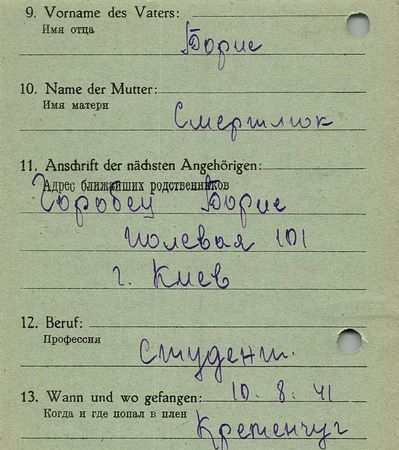 9. Vorname des Vaters:
Имя отца
Борис
10. Name der Mutter:
Имя матери
Смертлюк
11. Anschrift der nächsten Angehörigen:
Адрес ближайших родственников
Горобец Борис
Полевая 101
г. Киев
12. Beruf:
Профессия
Студент.
13. Wann und wo gefangen: 10. 8. 41
Когда и где попал в плен
Кременчуг